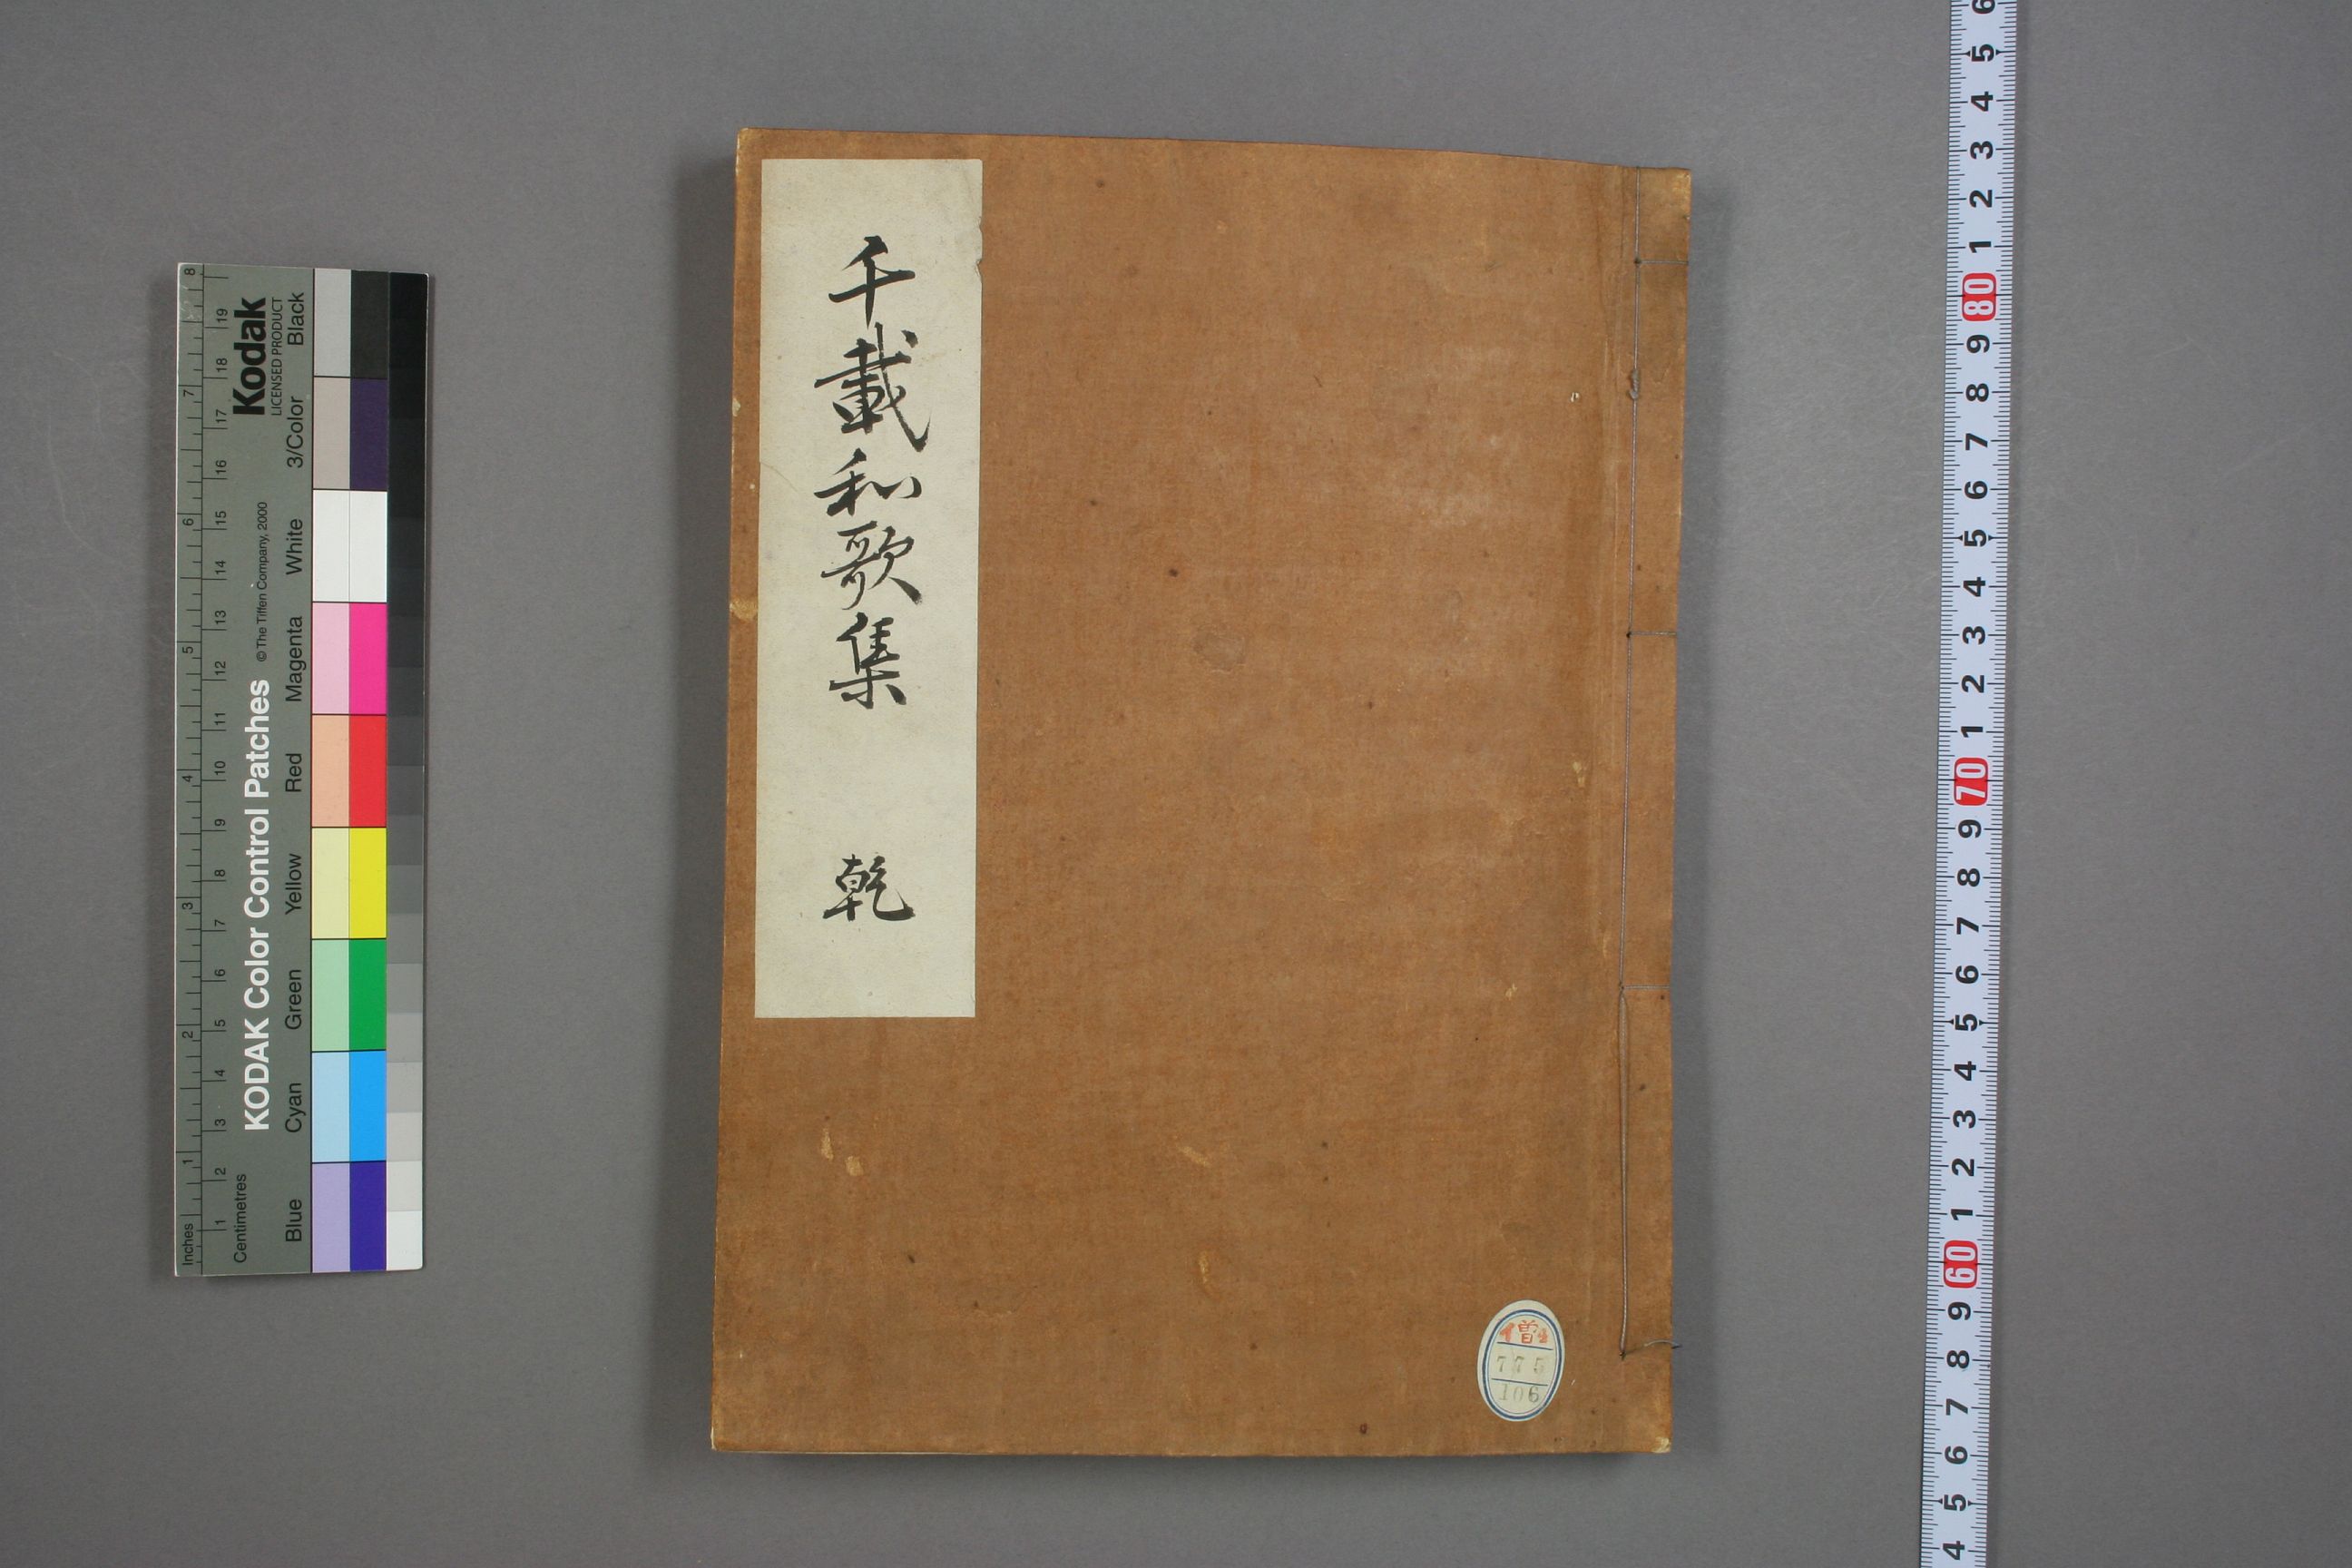 千載和歌集 乾
僧2
775
106
Kodak
LICENSED PRODUCT
KODAK Color Control Patches
© The Tiffen Company, 2000
Inches
1 2 3 4 5 6 7 8
Centimetres
1 2 3 4 5 6 7 8 9 10 11 12 13 14 15 16 17 18 19
Blue Cyan Green Yellow Red Magenta White 3/Color Black
4 5 6 7 8 9 60 1 2 3 4 5 6 7 8 9 70 1 2 3 4 5 6 7 8 9 80 1 2 3 4 5 6